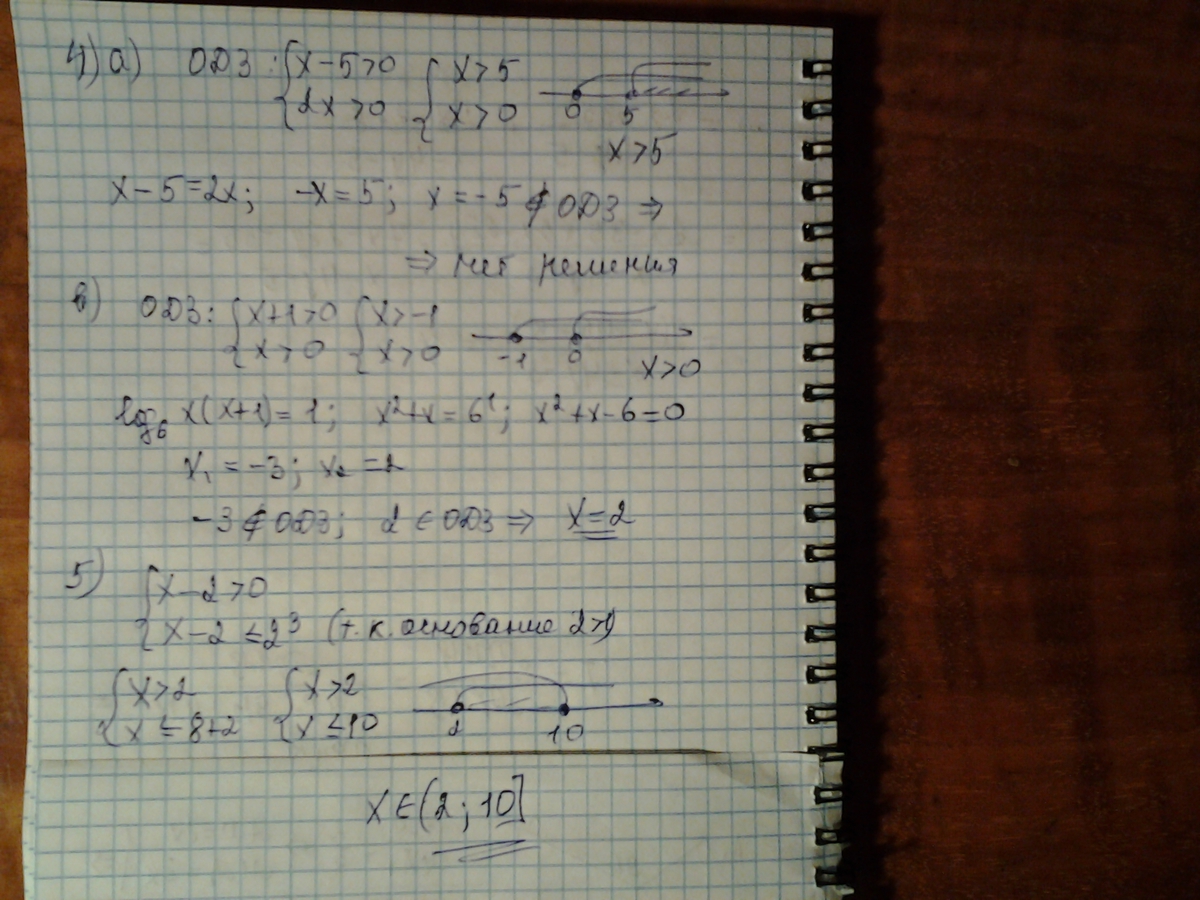 4) а) ОДЗ: {x-5>0 {x>5
{2x>0 {x>0 0 5
x>5
x-5=2x; -x=5; x=-5 ∉ ОДЗ ⇒
⇒ нет решения
в) ОДЗ: {x+1>0 {x>-1
{x>0 {x>0 -1 0
x>0
log₆ x(x+1)=1; x²+x=6¹; x²+x-6=0
x₁=-3; x₂=2
-3 ∉ ОДЗ; 2 ∈ ОДЗ ⇒ x=2
5) {x-2>0
{x-2≤2³ (т.к. основание 2>1)
{x>2 {x>2
{x≤8+2 {x≤10 2 10
x∈(2;10]